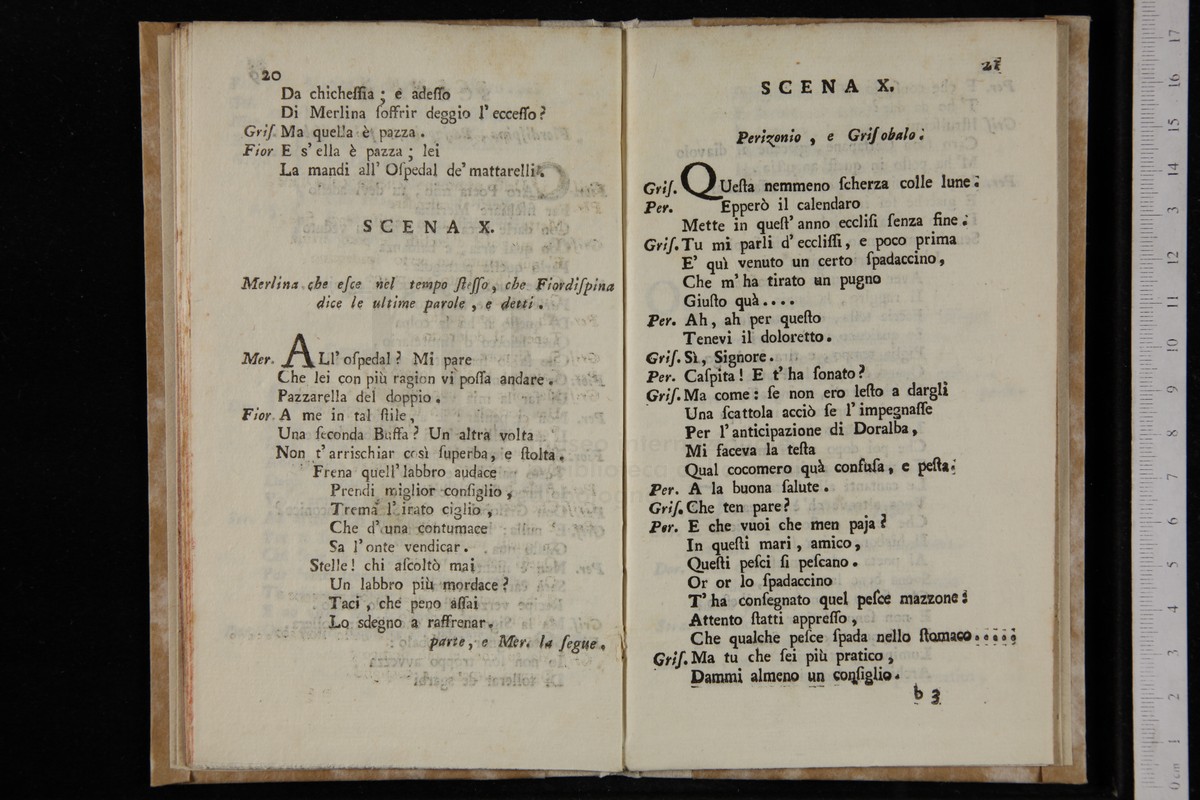 20
Da chicheſſia ; e adeſſo
Di Merlina ſoffrir deggio l' ecceſſo ?
Griſ Ma quella è pazza .
Fior E s' ella è pazza ; lei
La mandi all' Oſpedal de' mattarelli .
SCENA X.
Merlina che eſce nel tempo ſteſſo , che Fiordiſpina
dice le ultime parole , e detti .
Mer. ALl' oſpedal ? Mi pare
Che lei con più ragion vi poſſa andare .
Pazzarella del doppio .
Fior A me in tal ſtile ,
Una ſeconda Buffa ? Un altra volta
Non t' arriſchiar così ſuperba , e ſtolta .
Frena quell' labbro audace
Prendi miglior conſiglio ,
Trema l' irato ciglio ,
Che d' una contumace
Sa l' onte vendicar .
Stelle ! chi aſcoltò mai
Un labbro più mordace ?
Taci , che peno aſſai
Lo sdegno a raffrenar .
parte , e Mer. la ſegue .
21
SCENA X.
Perizonio , e Griſobalo .
Griſ. QUeſta nemmeno ſcherza colle lune .
Per. Epperò il calendaro
Mette in queſt' anno eccliſi ſenza fine .
Griſ. Tu mi parli d' eccliſſi , e poco prima
E' quì venuto un certo ſpadaccino ,
Che m' ha tirato un pugno
Giuſto quà . . . .
Per. Ah , ah per queſto
Tenevi il doloretto .
Griſ. Sì , Signore .
Per. Caſpita ! E t' ha ſonato ?
Griſ. Ma come : ſe non ero leſto a dargli
Una ſcattola acciò ſe l' impegnaſſe
Per l' anticipazione di Doralba ,
Mi faceva la teſta
Qual cocomero quà confuſa , e peſta .
Per. A la buona ſalute .
Griſ. Che ten pare ?
Per. E che vuoi che men paja ?
In queſti mari , amico ,
Queſti peſci ſi peſcano .
Or or lo ſpadaccino
T' ha conſegnato quel peſce mazzone :
Attento ſtatti appreſſo ,
Che qualche peſce ſpada nello ſtomaco . . . . .
Griſ. Ma tu che ſei più pratico ,
Dammi almeno un conſiglio .
b 3